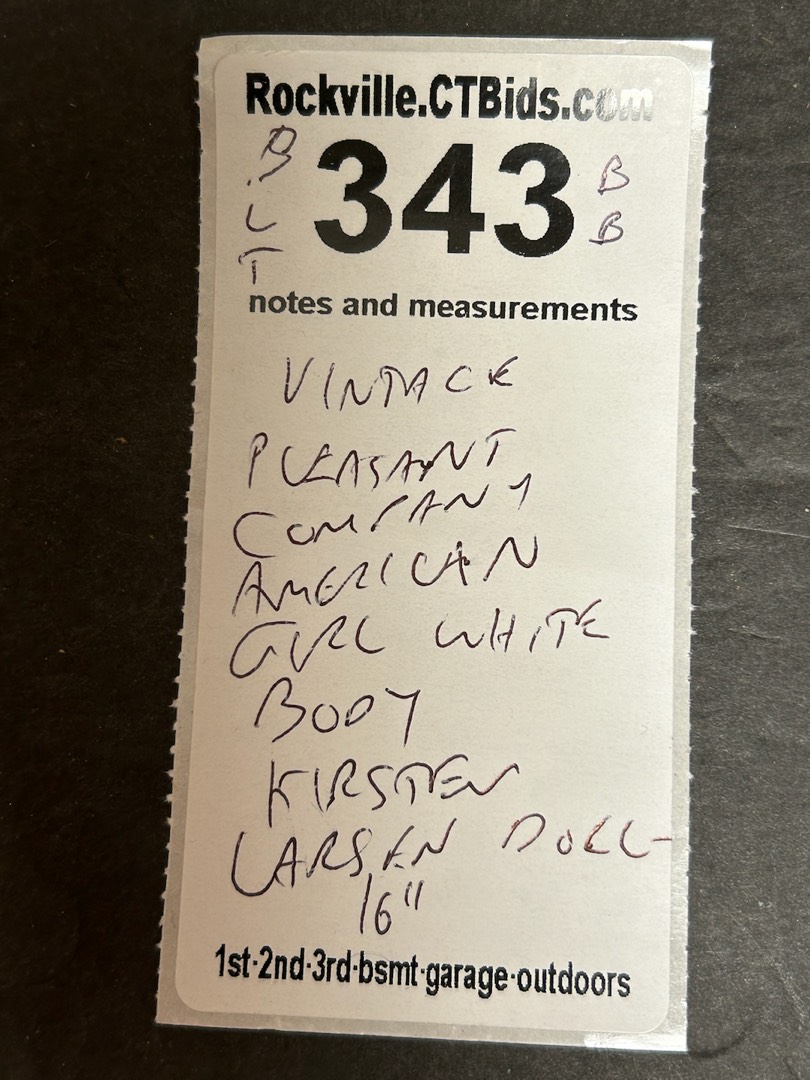 Rockville.CTBids.com
B
L
T
343
B
B
notes and measurements
VINTAGE
PLEASANT
COMPANY
AMERICAN
GIRL WHITE
BODY
KIRSTEN
LARSEN DOLL
16"
1st·2nd·3rd·bsmt·garage·outdoors